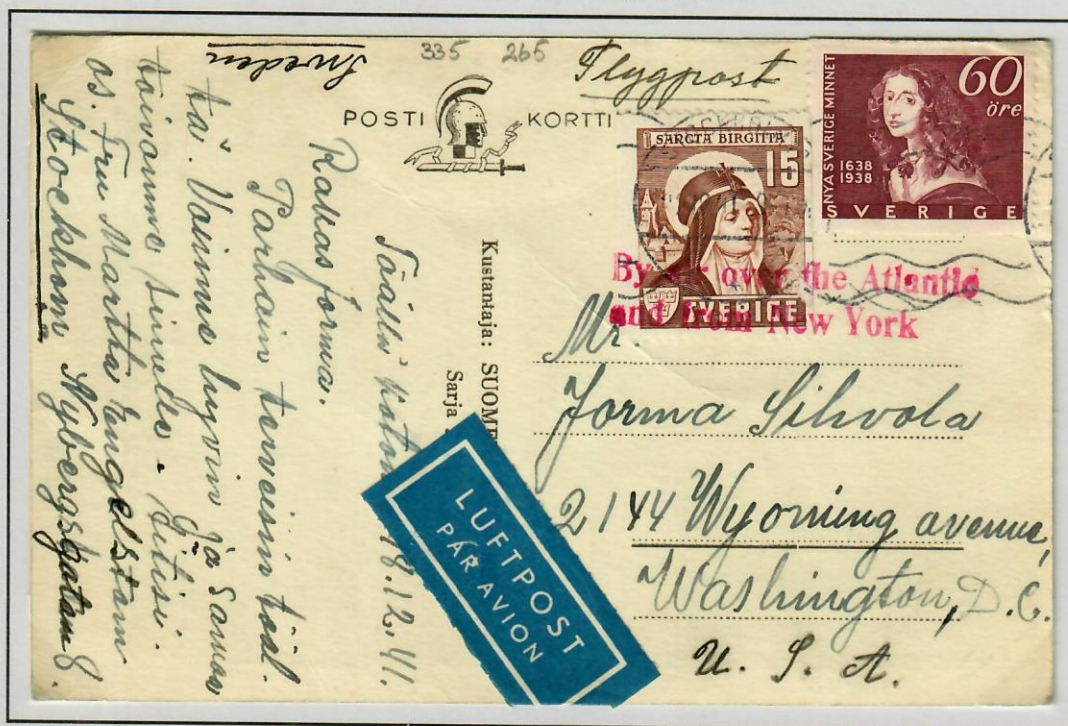 335 265
Flygpost
POSTI KORTTI
SANCTA BIRGITTA
15
SVERIGE
NYA SVERIGE MINNET
1638
1938
60
öre
SVERIGE
By air over the Atlantic
and from New York
Mr.
Jorma Sihvola
2144 Wyoming avenue,
Washington, D.C.
U. S. A.
Kustantaja: SUOME
Sarja
LUFTPOST
PAR AVION
18.12.41.
Rakas Jorma.
Parhain terveisin tääl
tä. Voimme hyvin ja samaa
toivomme sinulle. Äitisi.
os. Fru Martha Engelstam
Stockholm Nybergsgatan 8.
Sweden